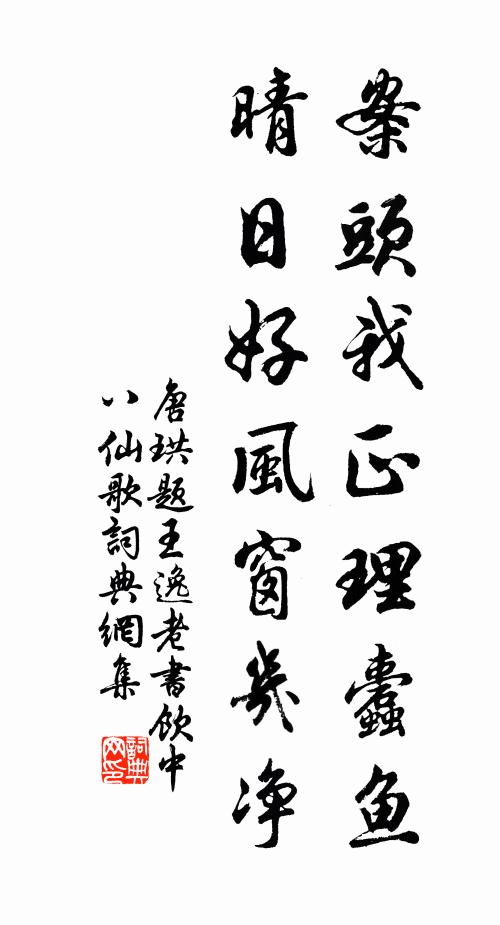 案頭我正理蠹魚
晴日好風窗几淨
唐珙題王逸老書飲中
八仙歌詞典網集
詞典網印